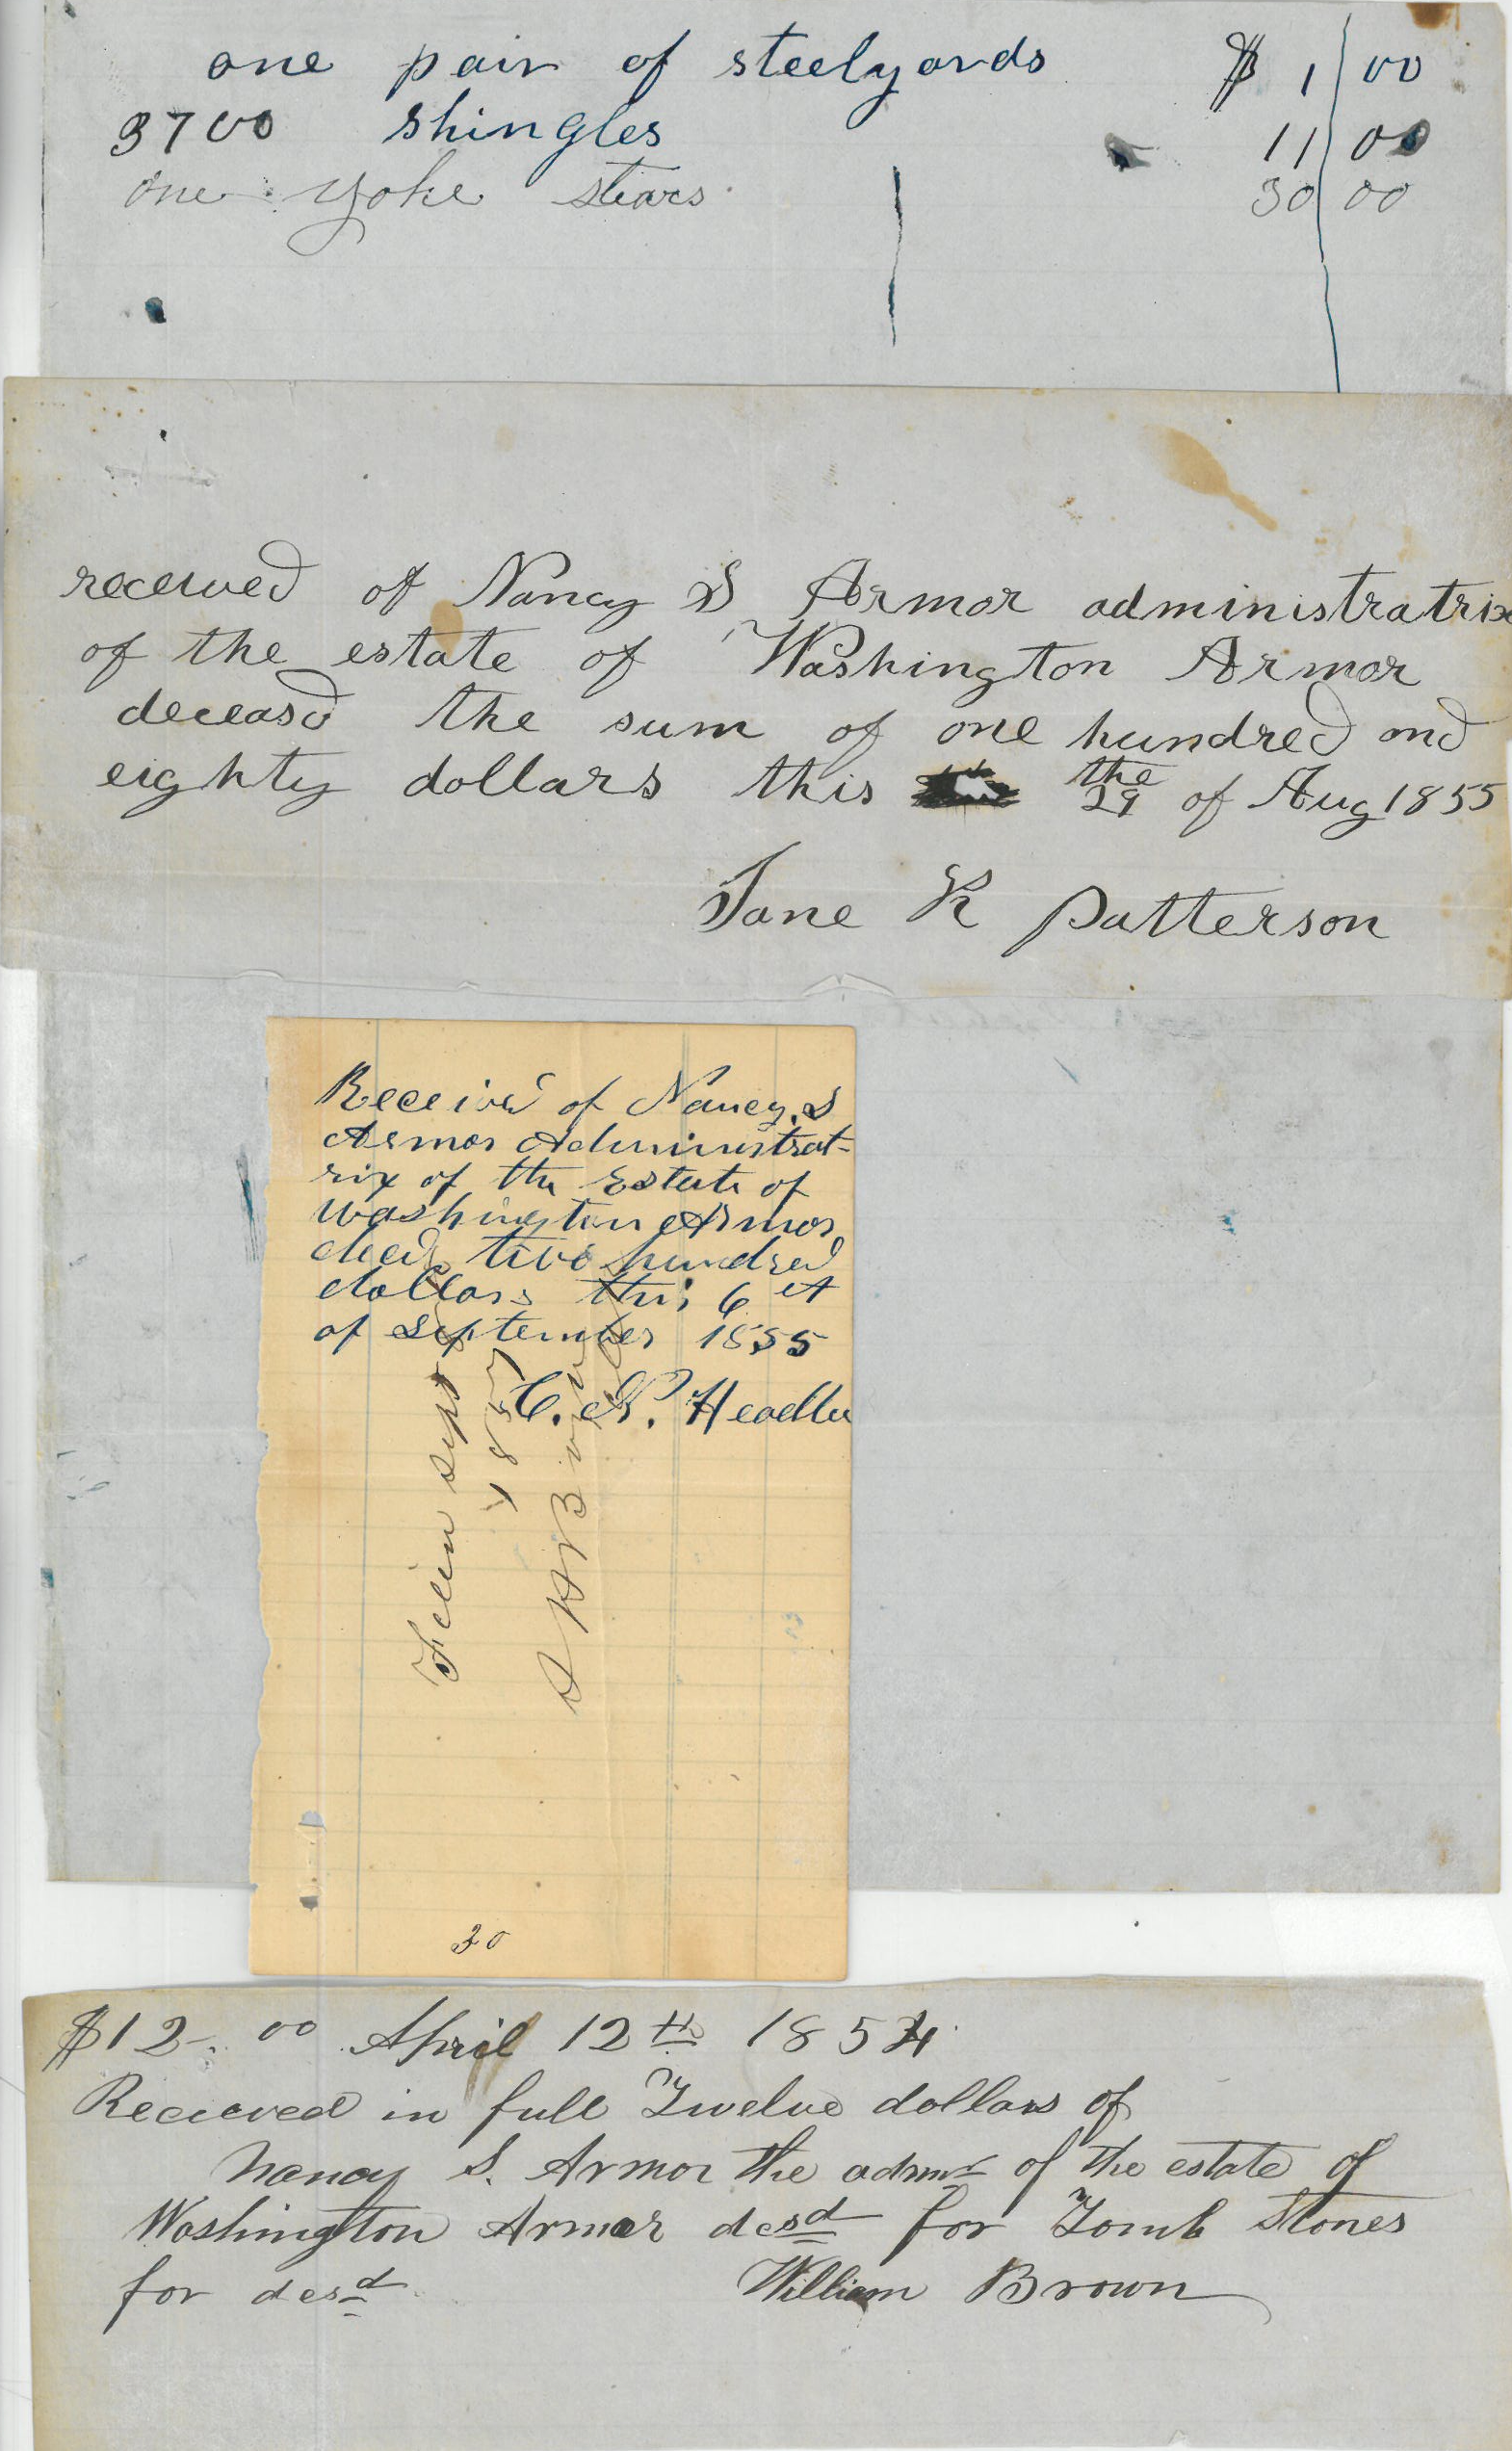 one pair of steelyards $ 1 00
3700 shingles 11 00
one yoke stears 30 00
received of Nancy S Armor administratrix
of the estate of Washington Armor
deceasd the sum of one hundred and
eighty dollars this the 29 of Aug 1855
Jane K Patterson
Received of Nancy. S
Armor Administrat-
rix of the Estate of
Washington Armor
decd two hundred
dollars this 6
of September 1855
C. K. Headlee
Sept
1857
30
$12.00 April 12th 1854
Recieved in full Twelve dollars of
Nancy S. Armor the admr of the estate of
Washington Armor desd for Tomb Stones
for desd William Brown